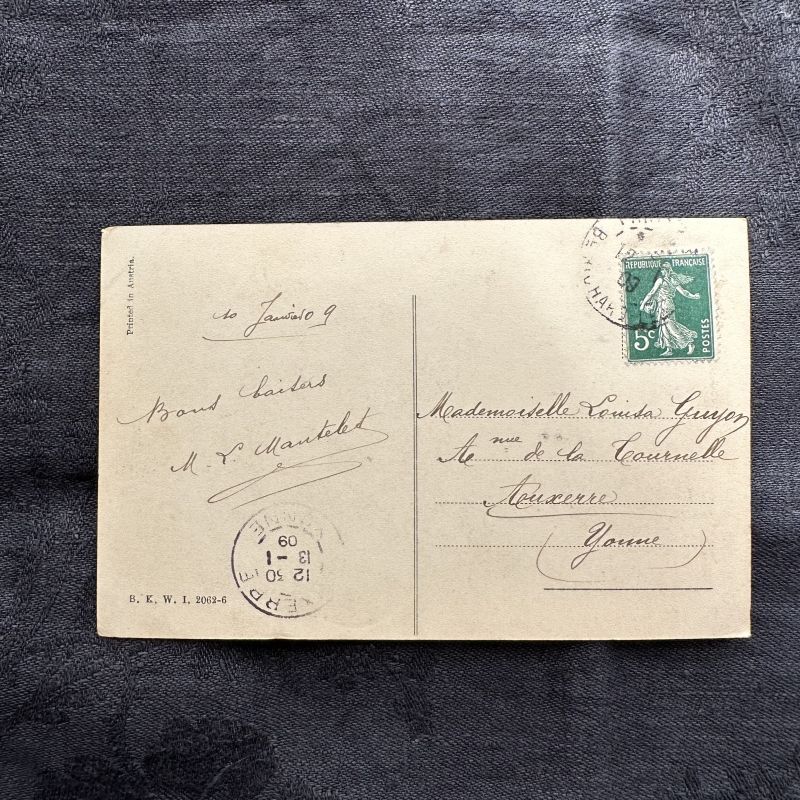 Printed in Austria.
10 Janvier 09
Bons baisers
M L Mantelet
B. K. W. I. 2062-6
REPUBLIQUE FRANÇAISE
5c
POSTES
Mademoiselle Louisa Guyon
Ae nue de la Tournelle
Auxerre
(Yonne)
YONNE
12 30
13 - 1
09